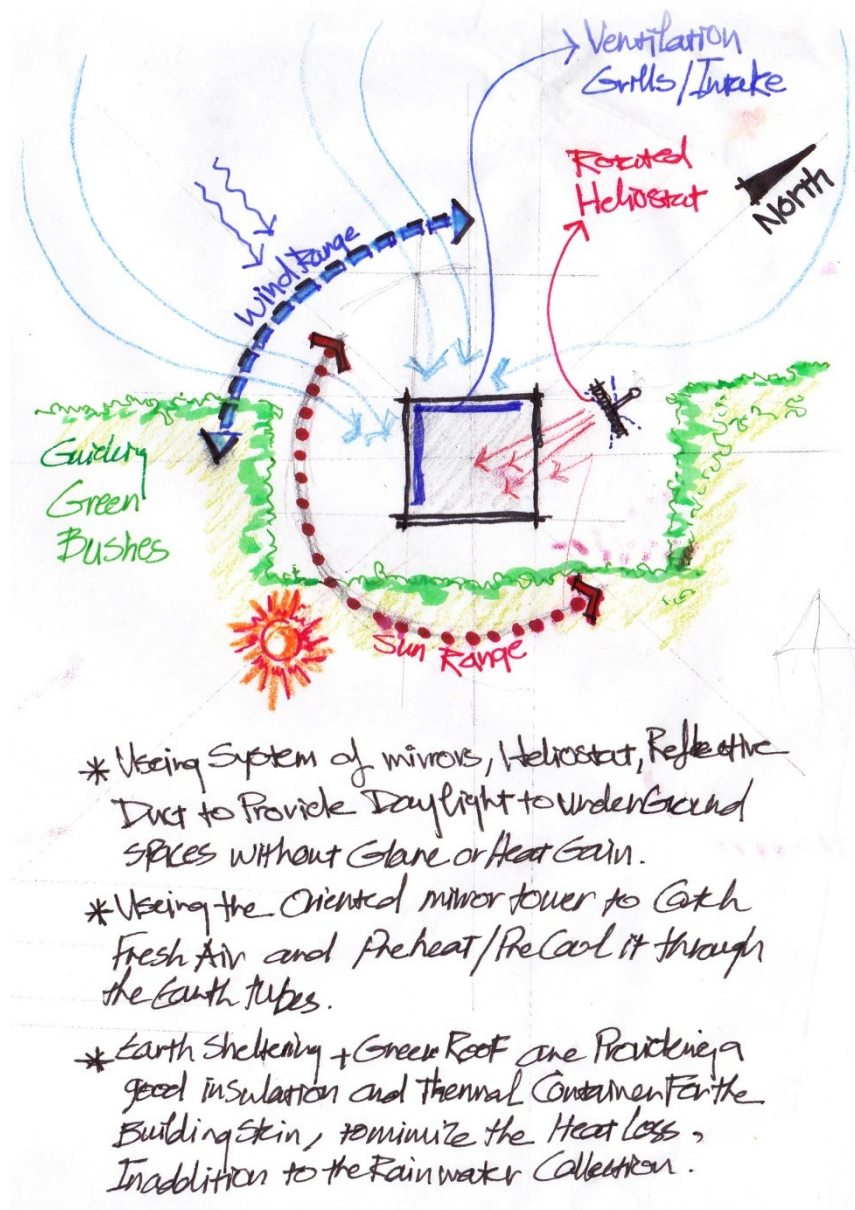 Ventilation
Grills/Intake
Rotated
Heliostat
North
Wind Range
Guiding
Green
Bushes
Sun Range
* Useing System of mirrors, Heliostat, Reflective
Duct to Provide Daylight to underGround
spaces without Glare or Heat Gain.
* Useing the Oriented mirror tower to Catch
Fresh Air and Preheat/PreCool it through
the Earth tubes.
* Earth Sheltering + Green Roof are Providing a
good insulation and Thermal Container For the
Building Skin, tominize the Heat Loss,
Inaddition to the Rainwater Collection.